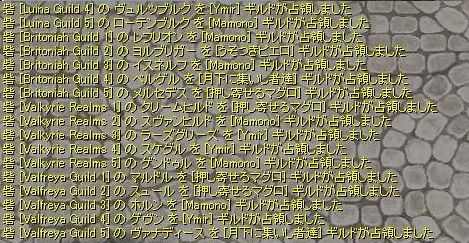 砦 [Luina Guild 4] の ヴュルツブルク を [Ymir] ギルドが占領しました
砦 [Luina Guild 5] の ローテンブルク を [Mamono] ギルドが占領しました
砦 [Britoniah Guild 1] の レプリオン を [Mamono] ギルドが占領しました
砦 [Britoniah Guild 2] の ヨルブリガー を [うそつきピエロ] ギルドが占領しました
砦 [Britoniah Guild 3] の イスネルフ を [Mamono] ギルドが占領しました
砦 [Britoniah Guild 4] の ベルゲル を [月下に集いし者達] ギルドが占領しました
砦 [Britoniah Guild 5] の メルセデス を [押し寄せるマグロ] ギルドが占領しました
砦 [Valkyrie Realms 1] の クリームヒルド を [押し寄せるマグロ] ギルドが占領しました
砦 [Valkyrie Realms 2] の スヴァンヒルド を [Mamono] ギルドが占領しました
砦 [Valkyrie Realms 3] の ラーズグリーズ を [Ymir] ギルドが占領しました
砦 [Valkyrie Realms 4] の スケグル を [Ymir] ギルドが占領しました
砦 [Valkyrie Realms 5] の ゲンドゥル を [Mamono] ギルドが占領しました
砦 [Valfreya Guild 1] の マルドル を [押し寄せるマグロ] ギルドが占領しました
砦 [Valfreya Guild 2] の スュール を [押し寄せるマグロ] ギルドが占領しました
砦 [Valfreya Guild 3] の ホルン を [Mamono] ギルドが占領しました
砦 [Valfreya Guild 4] の ゲヴン を [Ymir] ギルドが占領しました
砦 [Valfreya Guild 5] の ヴァナディース を [月下に集いし者達] ギルドが占領しました